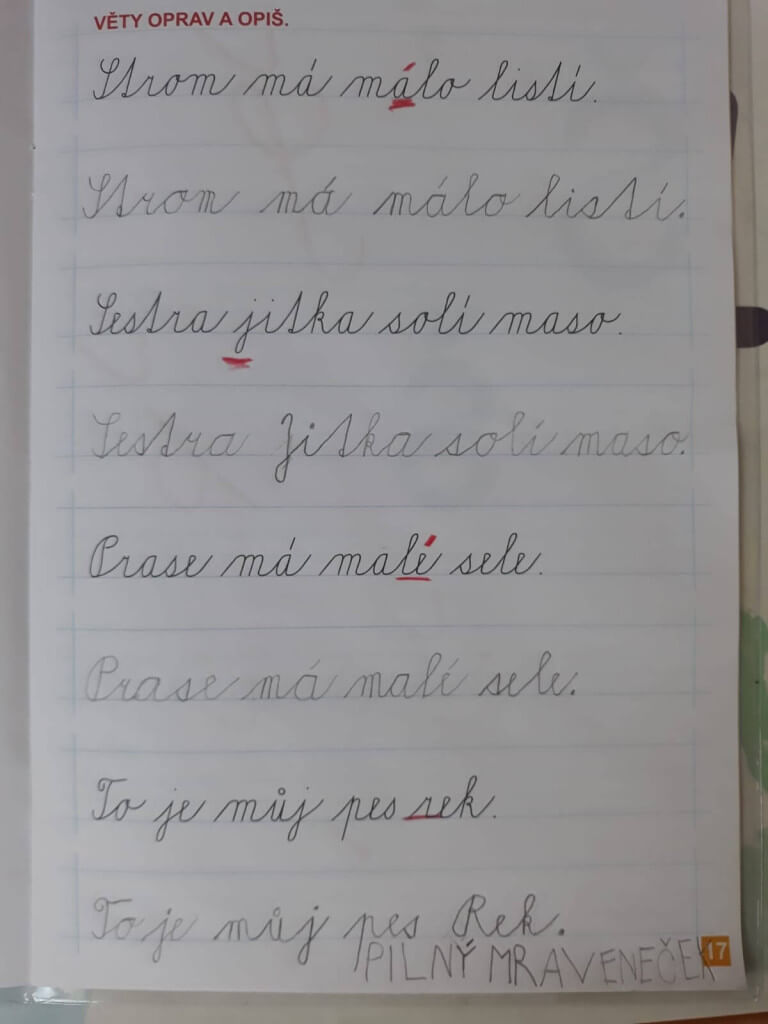 VĚTY OPRAV A OPIŠ.
Strom má málo listí.
Strom má málo listí.
Sestra jitka solí maso.
Sestra Jitka solí maso.
Prase má malé sele.
Prase má malé sele.
To je můj pes rek.
To je můj pes Rek.
PILNÝ MRAVENEČEK
17